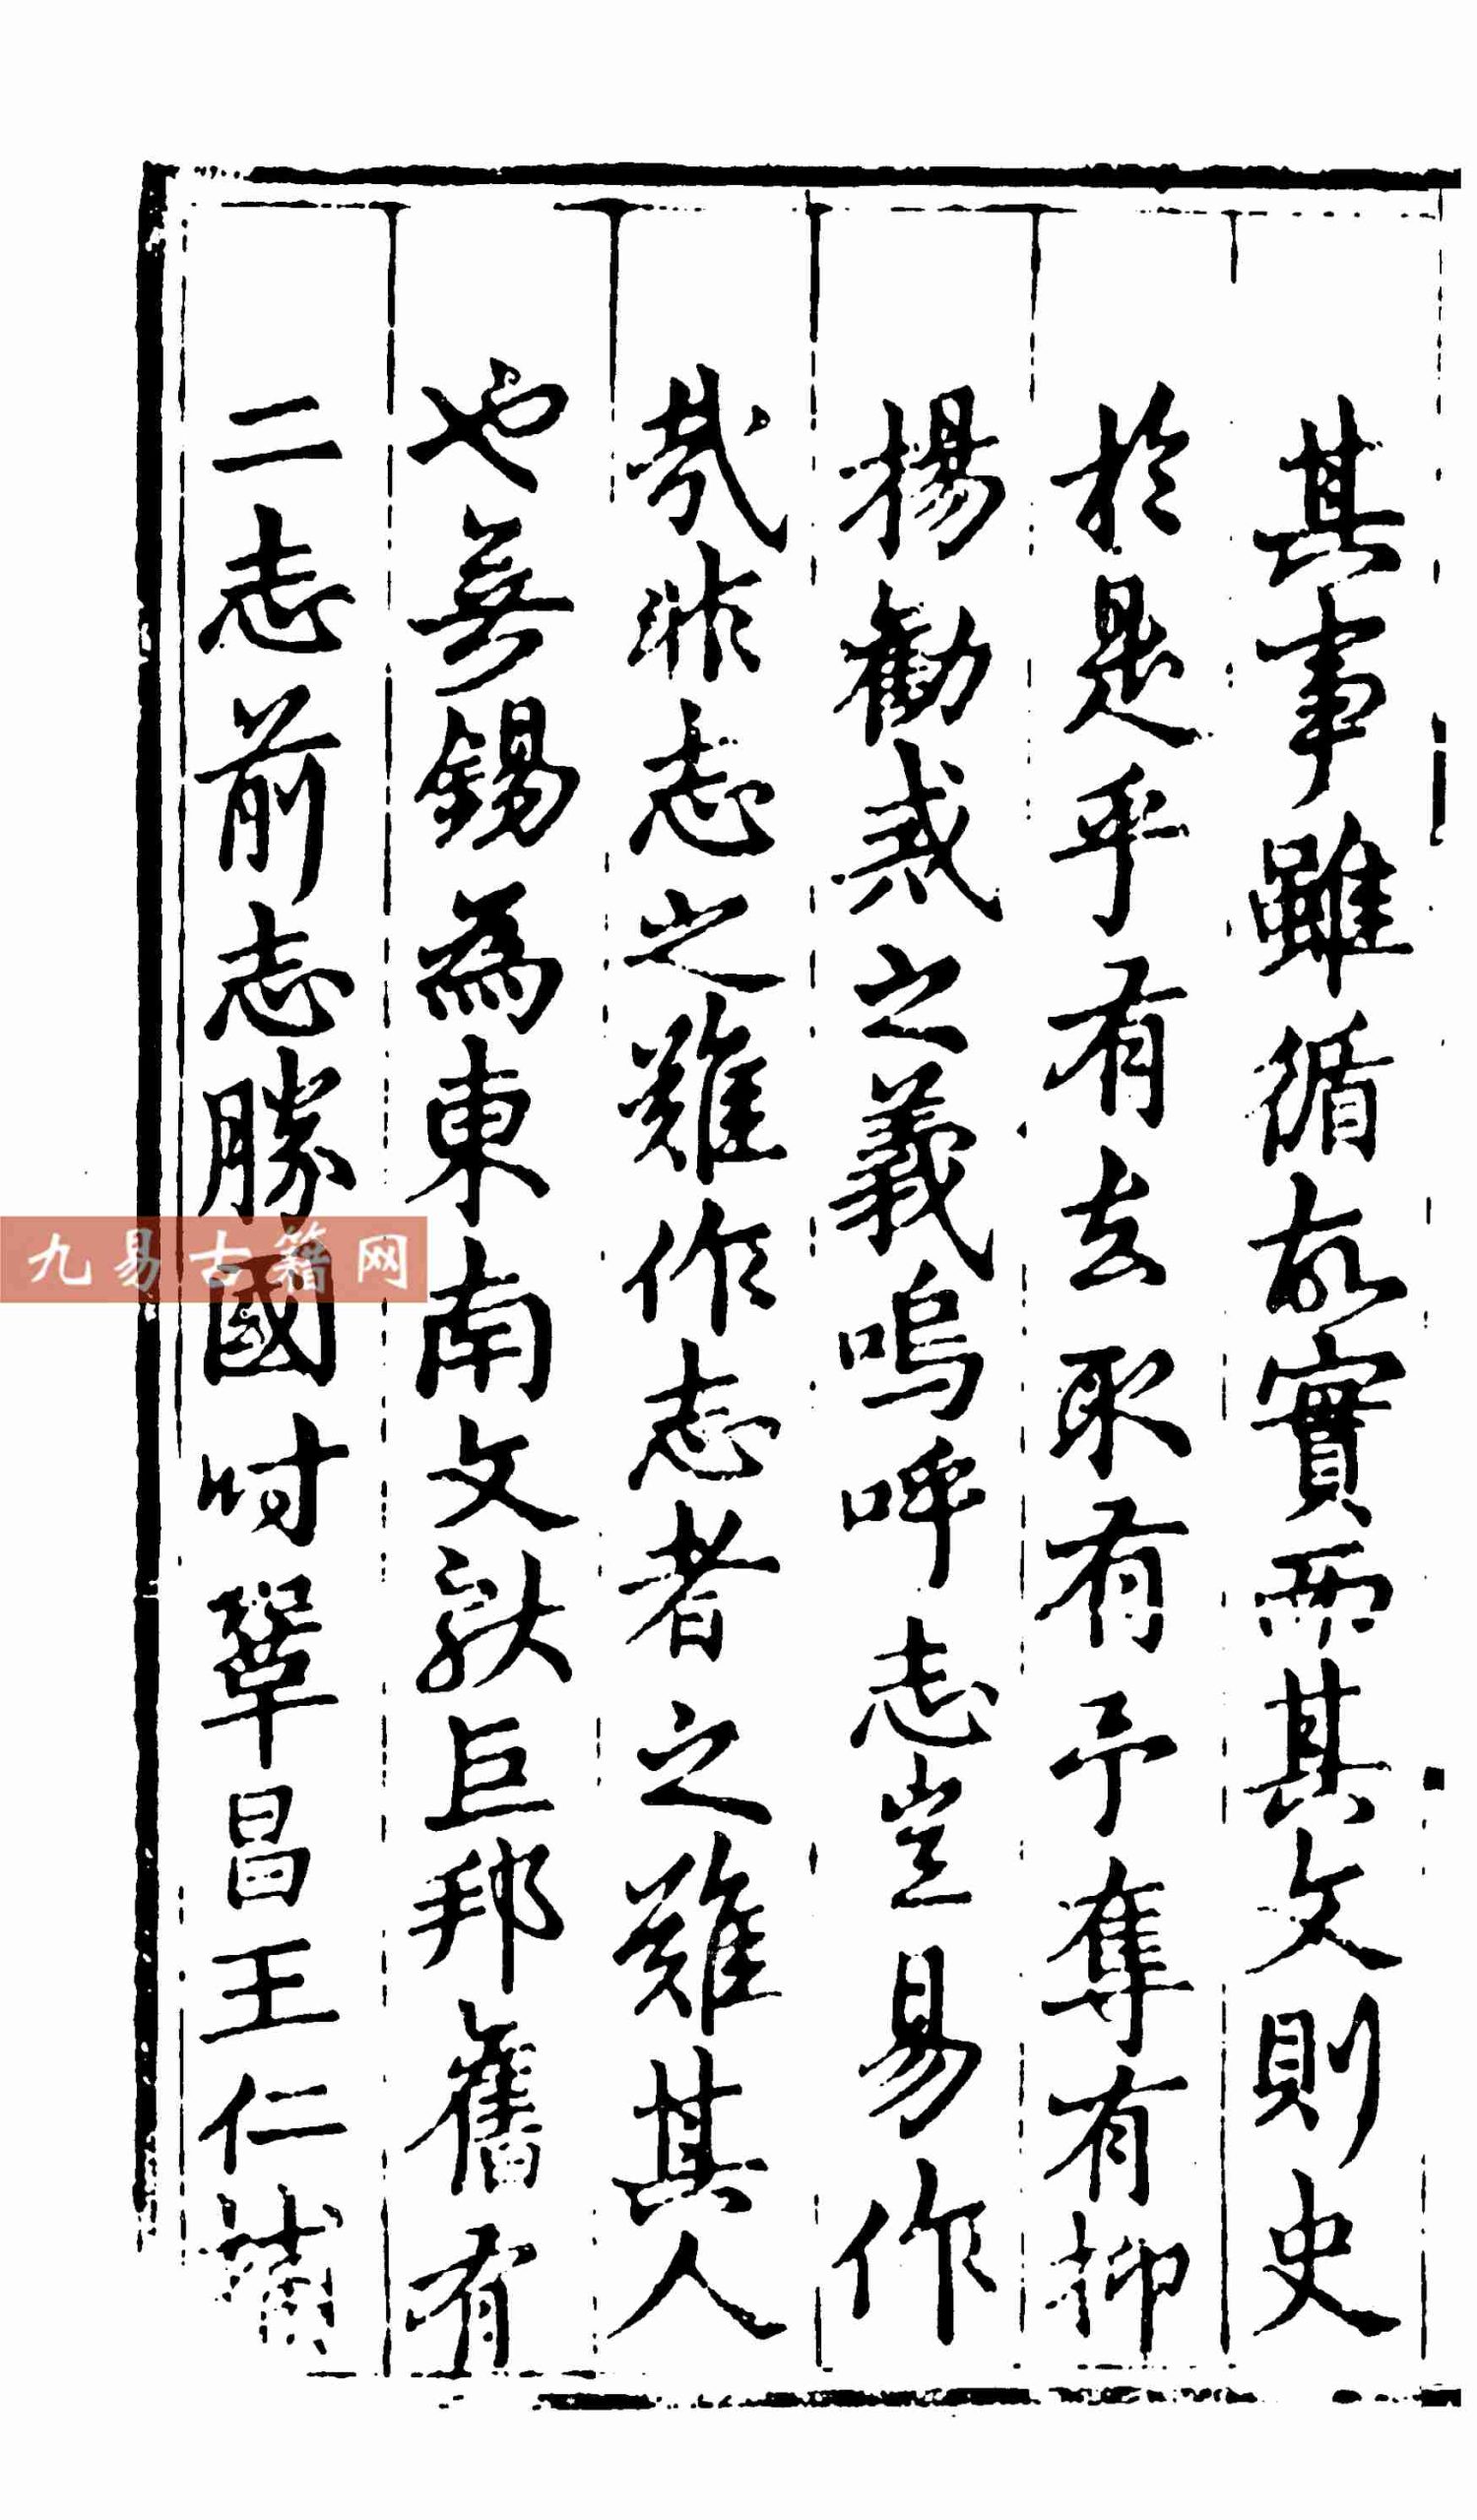 其事雖循故實而其文則史
於是乎有去取有予奪有抑
揚勸戒之義嗚呼志豈易作
哉非志之難作志者之難其人
也無錫為東南文獻巨邦舊有
二志前志勝國時鞏昌王仁輔
九易古籍网